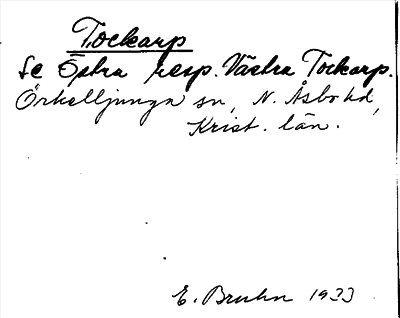 Tockarp
Se Östra resp. Västra Tockarp.
Örkelljunga sn, N. Åsbo hd,
Krist. län.
E. Bruhn 1933